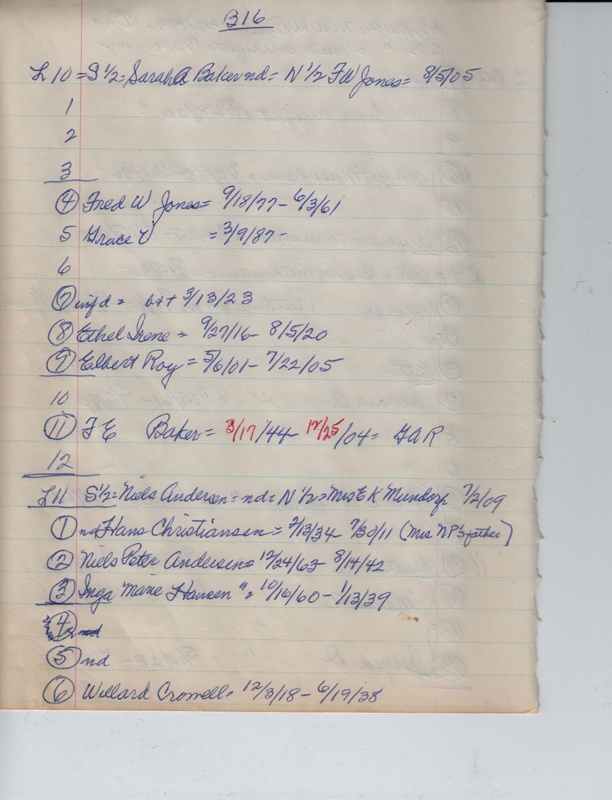 B16
L 10 = S 1/2 = Sarah A Baker nd = N 1/2 F W Jones = 8/5/05
1
2
3
4 Fred W Jones = 9/18/77 - 6/3/61
5 Grace V = 3/9/87 -
6
7 inf d = b++ 3/13/23
8 Ethel Irene = 9/27/16 - 8/5/20
9 Elbert Roy = 5/6/01 - 7/22/05
10
11 F E Baker = 3/17/44 - 12/25/04 = GAR
12
L 11 S 1/2 = Niels Andersen = nd = N 1/2 = Mrs E K Mundorf 7/2/09
1 nd Hans Christiansen = 2/13/34 - 7/30/11 (Mrs NP's father)
2 Niels Peter Andersen = 12/24/63 - 8/14/42
3 Inga Marie Hansen " = 10/16/60 - 1/13/39
4 nd
5 nd
6 Willard Cromell = 12/3/18 - 6/19/38